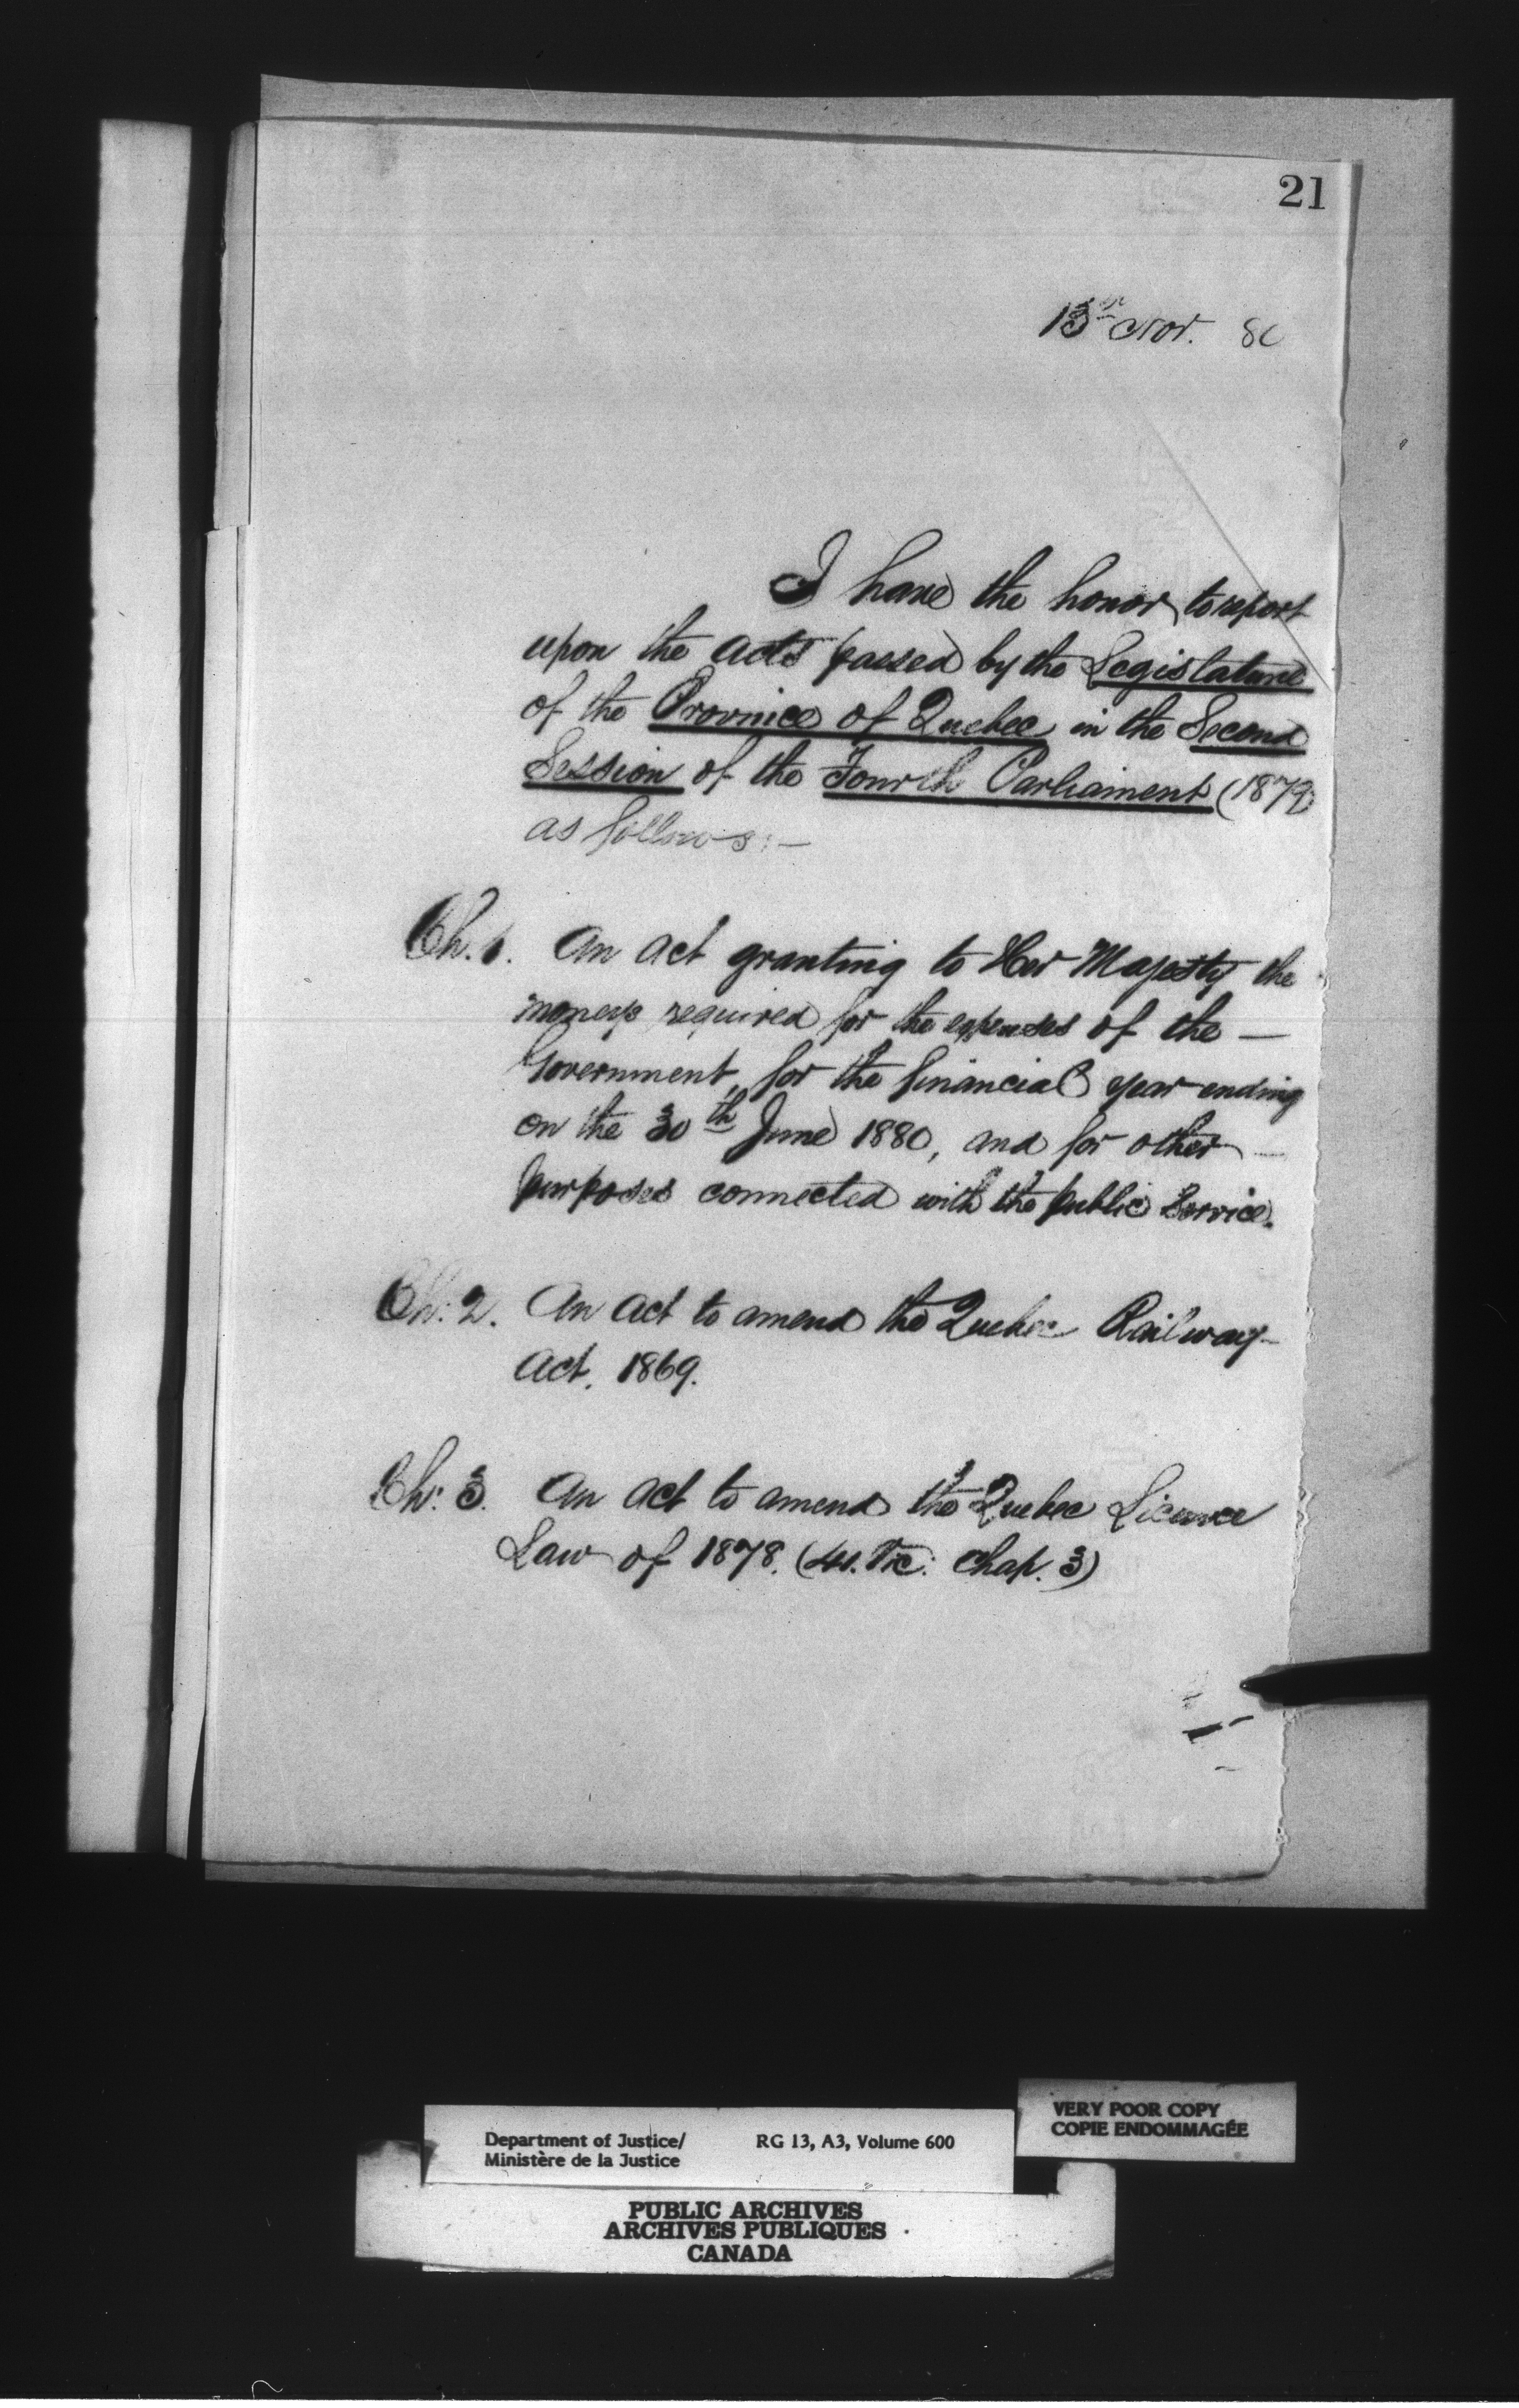 21
13th Nov. 80
I have the honor to report
upon the acts passed by the Legislature
of the Province of Quebec in the Second
Session of the Fourth Parliament (1879)
as follows:—
Ch. 1. An act granting to Her Majesty the
moneys required for the expenses of the —
Government, for the financial year ending
on the 30th June 1880, and for other —
purposes connected with the public service.
Ch: 2. An act to amend the Quebec Railway
Act, 1869.
Ch: 3. An act to amend the Quebec License
Law of 1878. (41. Vic: Chap. 3)
VERY POOR COPY
COPIE ENDOMMAGÉE
Department of Justice/ RG 13, A3, Volume 600
Ministère de la Justice
PUBLIC ARCHIVES
ARCHIVES PUBLIQUES
CANADA